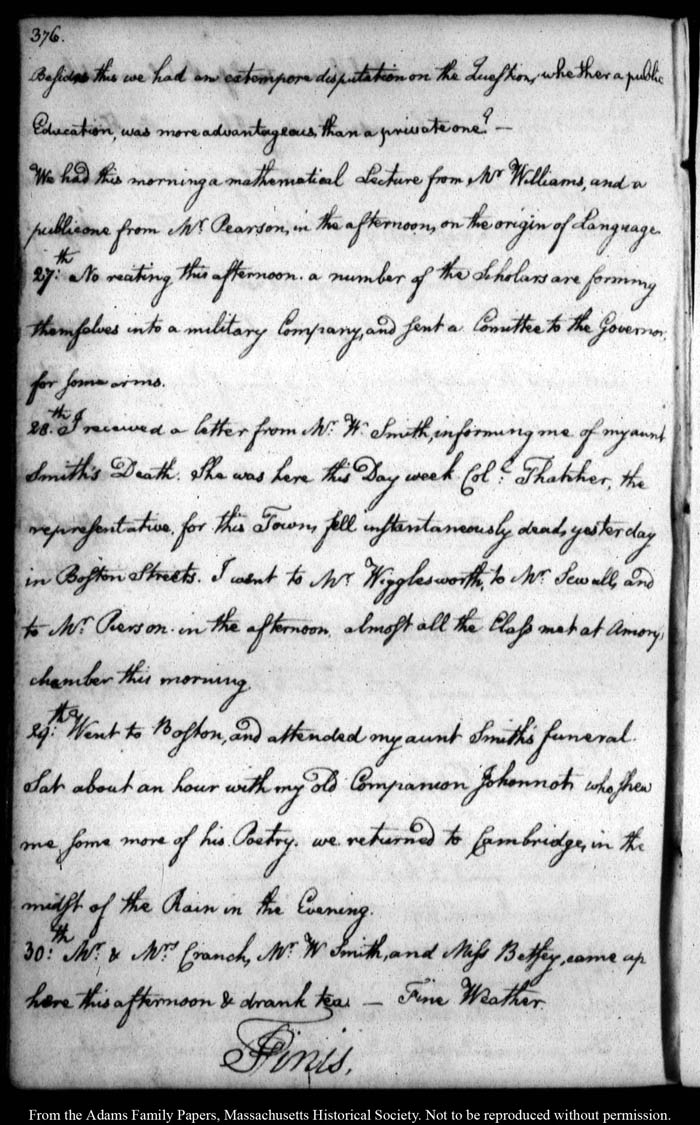 376.
Besides this we had an extempore disputation on the Question, whether a public
Education, was more advantageous, than a private one? —
We had this morning a mathematical Lecture from Mr. Williams, and a
public one from Mr. Pearson, in the afternoon, on the origin of Language
27:th No reciting this afternoon. a number of the Scholars are forming
themselves into a military Company, and sent a Comittee to the Governor,
for some arms.
28.th I received a letter from Mr. W. Smith, informing me of my aunt
Smith's Death. She was here this Day week. Col:l Thatcher, the
representative, for this Town, fell instantaneously dead, yesterday
in Boston Streets. I went to Mr. Wigglesworth, to Mr. Sewall, and
to Mr. Pierson. in the afternoon. almost all the Class met at Amory,
chamber this morning
29:th Went to Boston, and attended my aunt Smith's funeral.
Sat about an hour with my old Companion Johonnot, who shew
me, some more of his Poetry. we returned to Cambridge, in the
midst of the Rain in the Evening.
30:th Mr. & Mrs. Cranch, Mr. W Smith, and Miss Betsey, came up
here this afternoon & drank tea. — Fine Weather.
Finis,
From the Adams Family Papers, Massachusetts Historical Society. Not to be reproduced without permission.